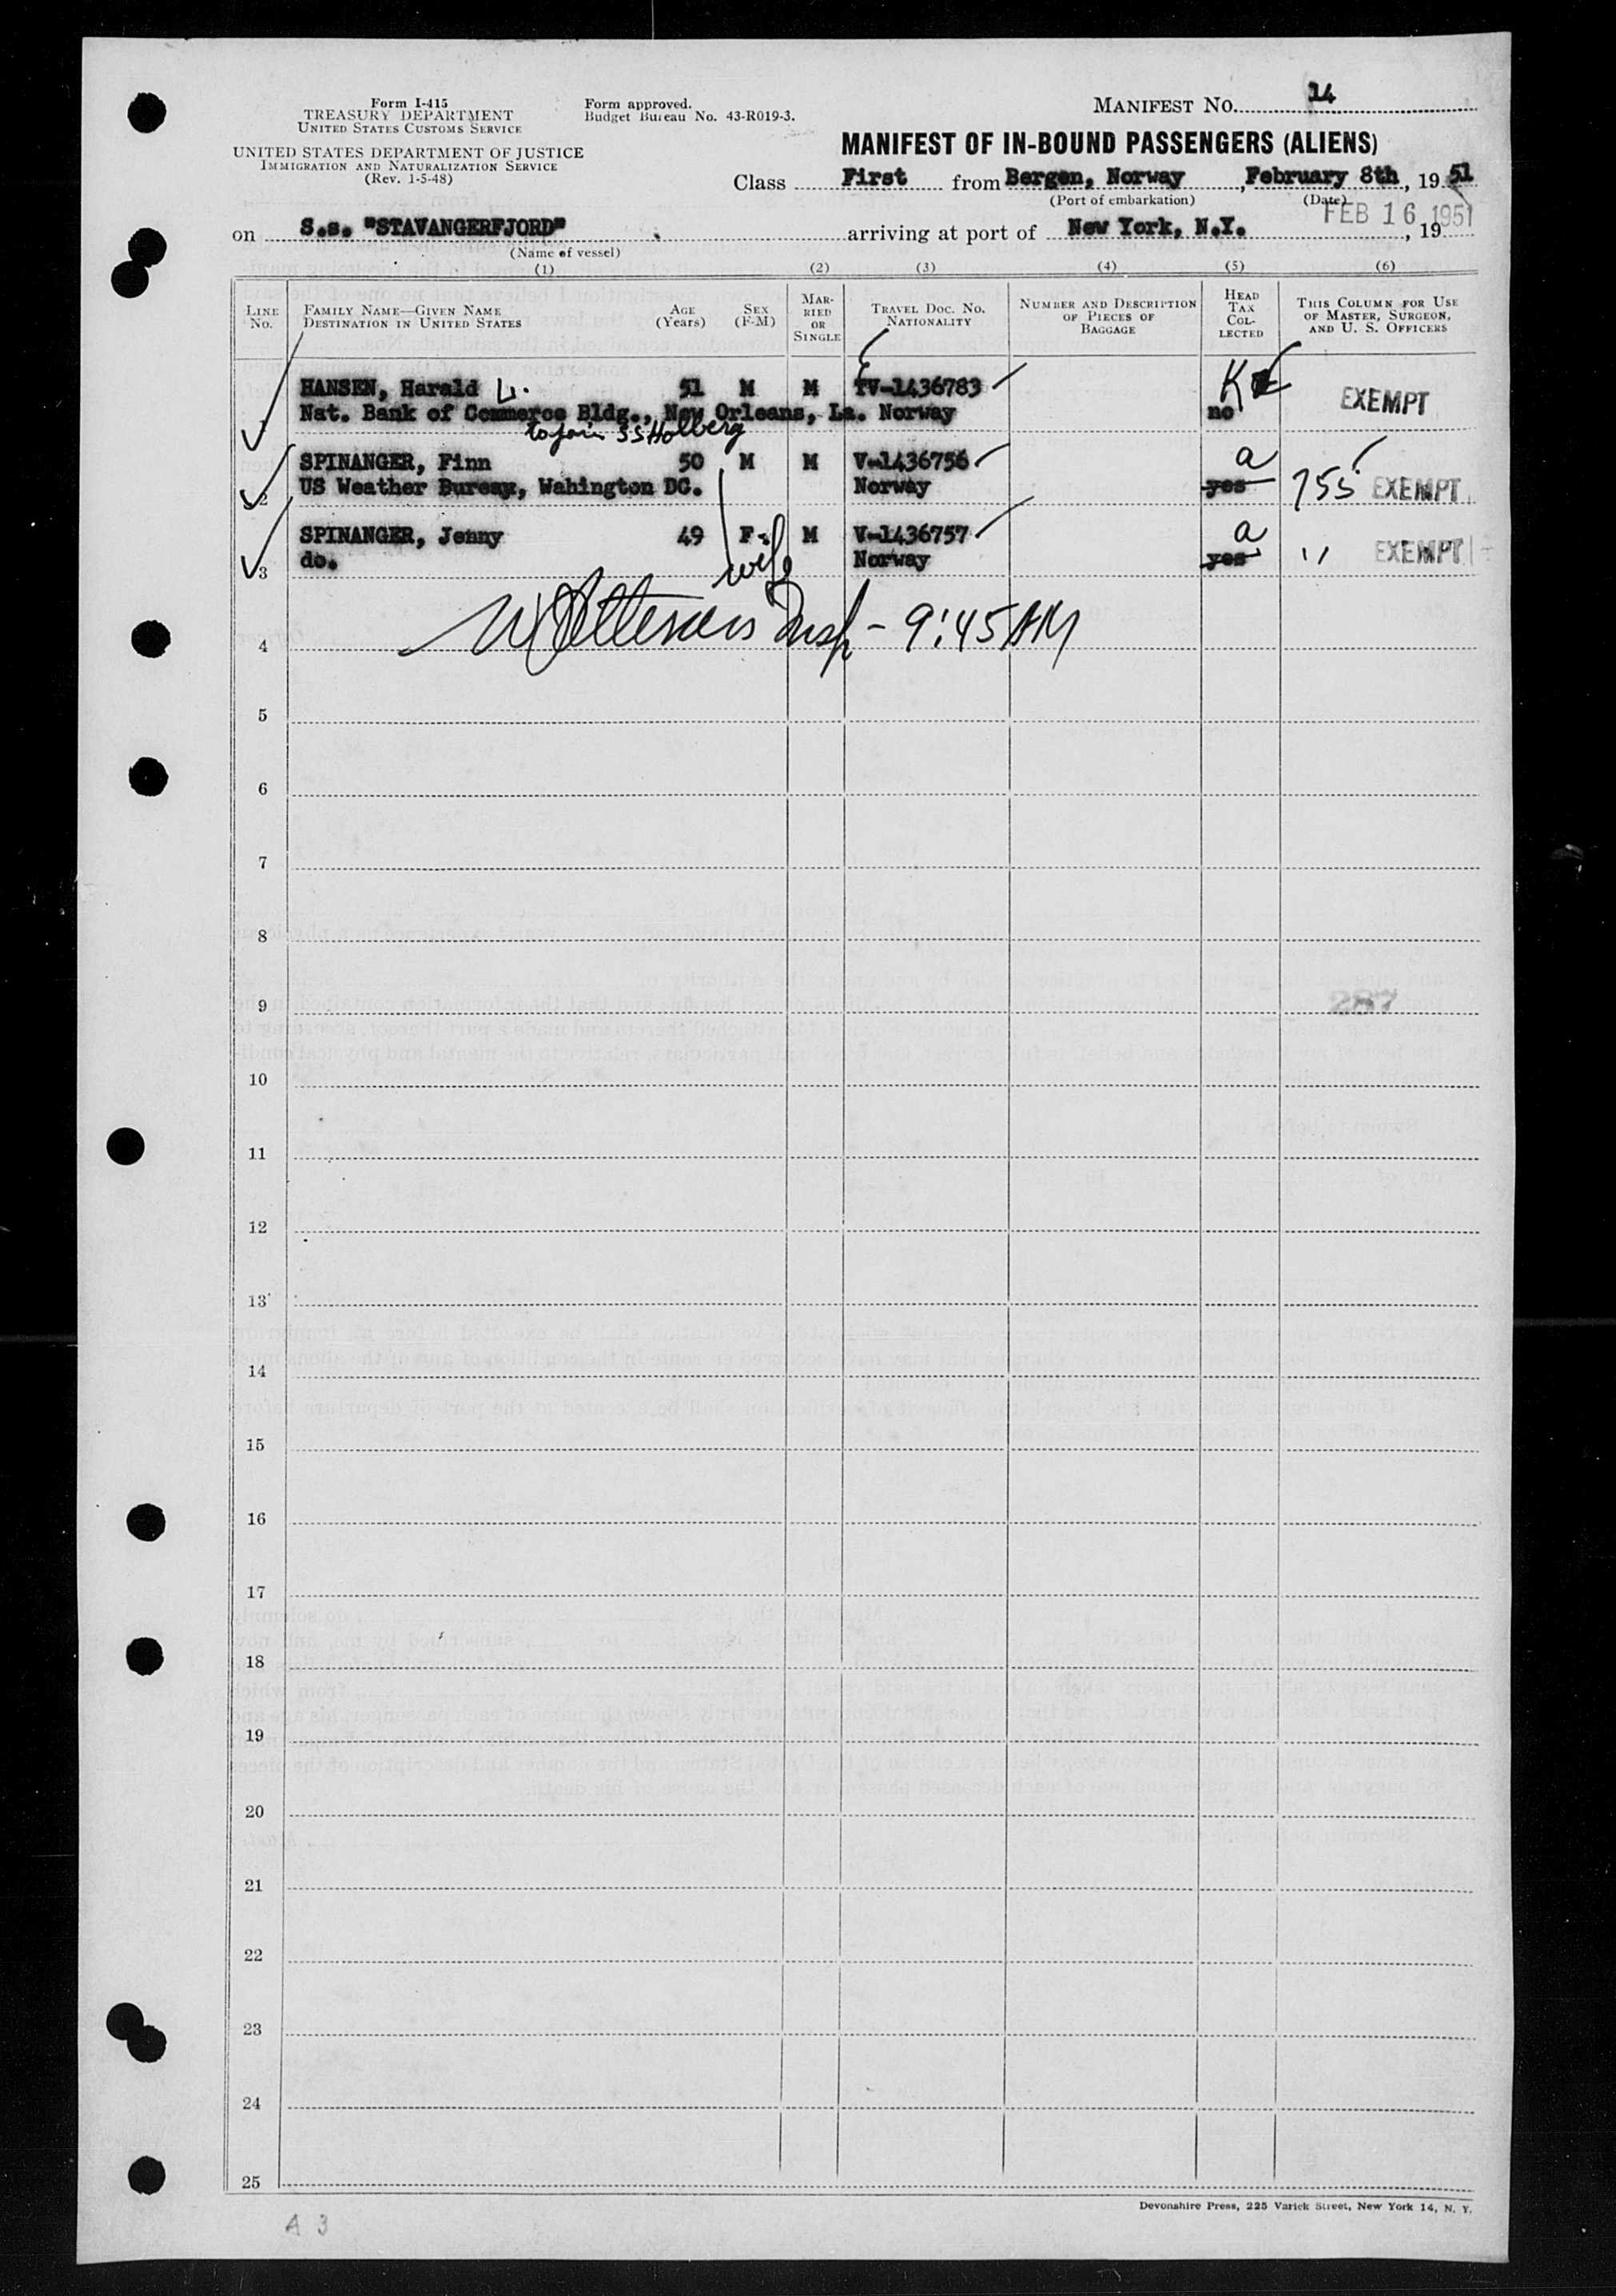 Form I-415
TREASURY DEPARTMENT
UNITED STATES CUSTOMS SERVICE
UNITED STATES DEPARTMENT OF JUSTICE
IMMIGRATION AND NATURALIZATION SERVICE
(Rev. 1-5-48)
Form approved.
Budget Bureau No. 43-R019-3.
MANIFEST NO. 14
MANIFEST OF IN-BOUND PASSENGERS (ALIENS)
Class First from Bergen, Norway, February 8th, 19 51
(Port of embarkation) (Date)
FEB 16 1951
on S.s. "STAVANGERFJORD" arriving at port of New York, N.Y., 19
(Name of vessel)
(1) (2) (3) (4) (5) (6)
LINE No.
FAMILY NAME—GIVEN NAME
DESTINATION IN UNITED STATES
AGE (Years)
SEX (F-M)
MARRIED OR SINGLE
TRAVEL DOC. NO. NATIONALITY
NUMBER AND DESCRIPTION OF PIECES OF BAGGAGE
HEAD TAX COLLECTED
THIS COLUMN FOR USE OF MASTER, SURGEON, AND U. S. OFFICERS
HANSEN, Harald 51 M M TV-1436783 K EXEMPT
Nat. Bank of Commerce Bldg., New Orleans, La. Norway no
to join SS Holberg
SPINANGER, Finn 50 M M V-1436756 a
2 US Weather Bureau, Wahington DC. Norway yes 755 EXEMPT
SPINANGER, Jenny 49 F. M V-1436757 a
3 do. wife Norway yes " EXEMPT
4 Insp - 9:45 AM
5
6
7
8
9
287
10
11
12
13
14
15
16
17
18
19
20
21
22
23
24
25
Devonshire Press, 225 Varick Street, New York 14, N. Y.
A 3